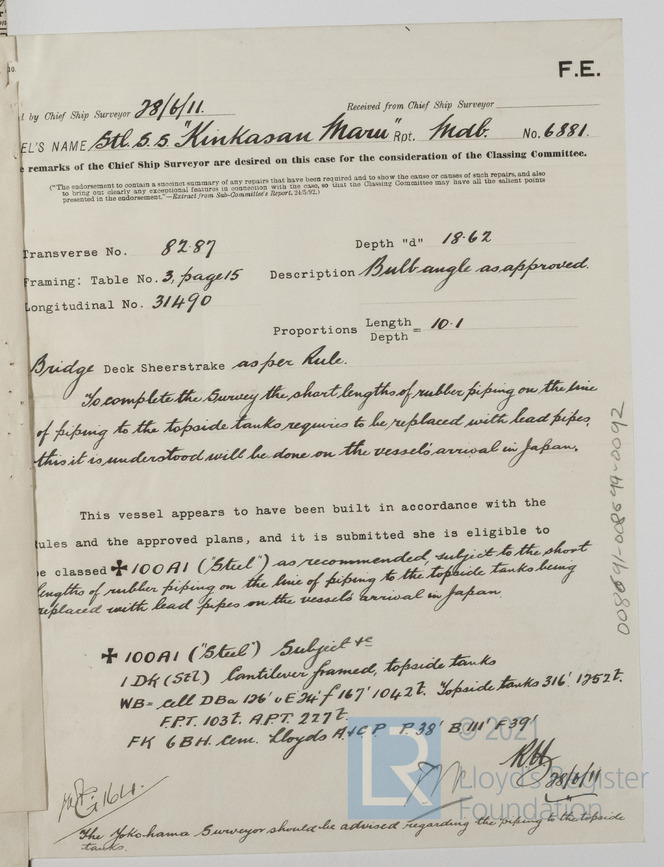 F.E.
d by Chief Ship Surveyor 28/6/11. Received from Chief Ship Surveyor
EL'S NAME Stl. S.S. "Kinkasan Maru" Rpt. Mdb. No. 6881.
e remarks of the Chief Ship Surveyor are desired on this case for the consideration of the Classing Committee.
("The endorsement to contain a succinct summary of any repairs that have been required and to show the cause or causes of such repairs, and also
to bring out clearly any exceptional features in connection with the case, so that the Classing Committee may have all the salient points
presented in the endorsement."—Extract from Sub-Committee's Report, 24/5/92.)
Transverse No. 82.87 Depth "d" 18.62
Framing: Table No. 3, page 15 Description Bulb angle as approved.
Longitudinal No. 31490
Proportions Length / Depth = 10.1
Bridge Deck Sheerstrake as per Rule.
To complete the Survey the short lengths of rubber piping on the line
of piping to the topside tanks requries to be replaced with lead pipes,
this it is understood will be done on the vessel's arrival in Japan.
This vessel appears to have been built in accordance with the
ules and the approved plans, and it is submitted she is eligible to
be classed ✠ 100A1 ("Steel") as recommended, subject to the short
lengths of rubber piping on the line of piping to the topside tanks being
replaced with lead pipes on the vessel's arrival in Japan.
✠ 100A1 ("Steel") Subject &c
1 Dk (Stl) Cantilever framed, topside tanks
WB = cell DBa 126' u E 24' f 167' 1042t. Topside tanks 316' 1252t.
F.P.T. 103t. A.P.T. 227t.
FK 6BH. cem. Lloyds A&CP P. 38' B 111' F 39'
28/6/11
The Yokohama Surveyor should be advised regarding the piping to the topside
tanks.
008691-008699-0092
© 2021
LR
Lloyd's Register
Foundation